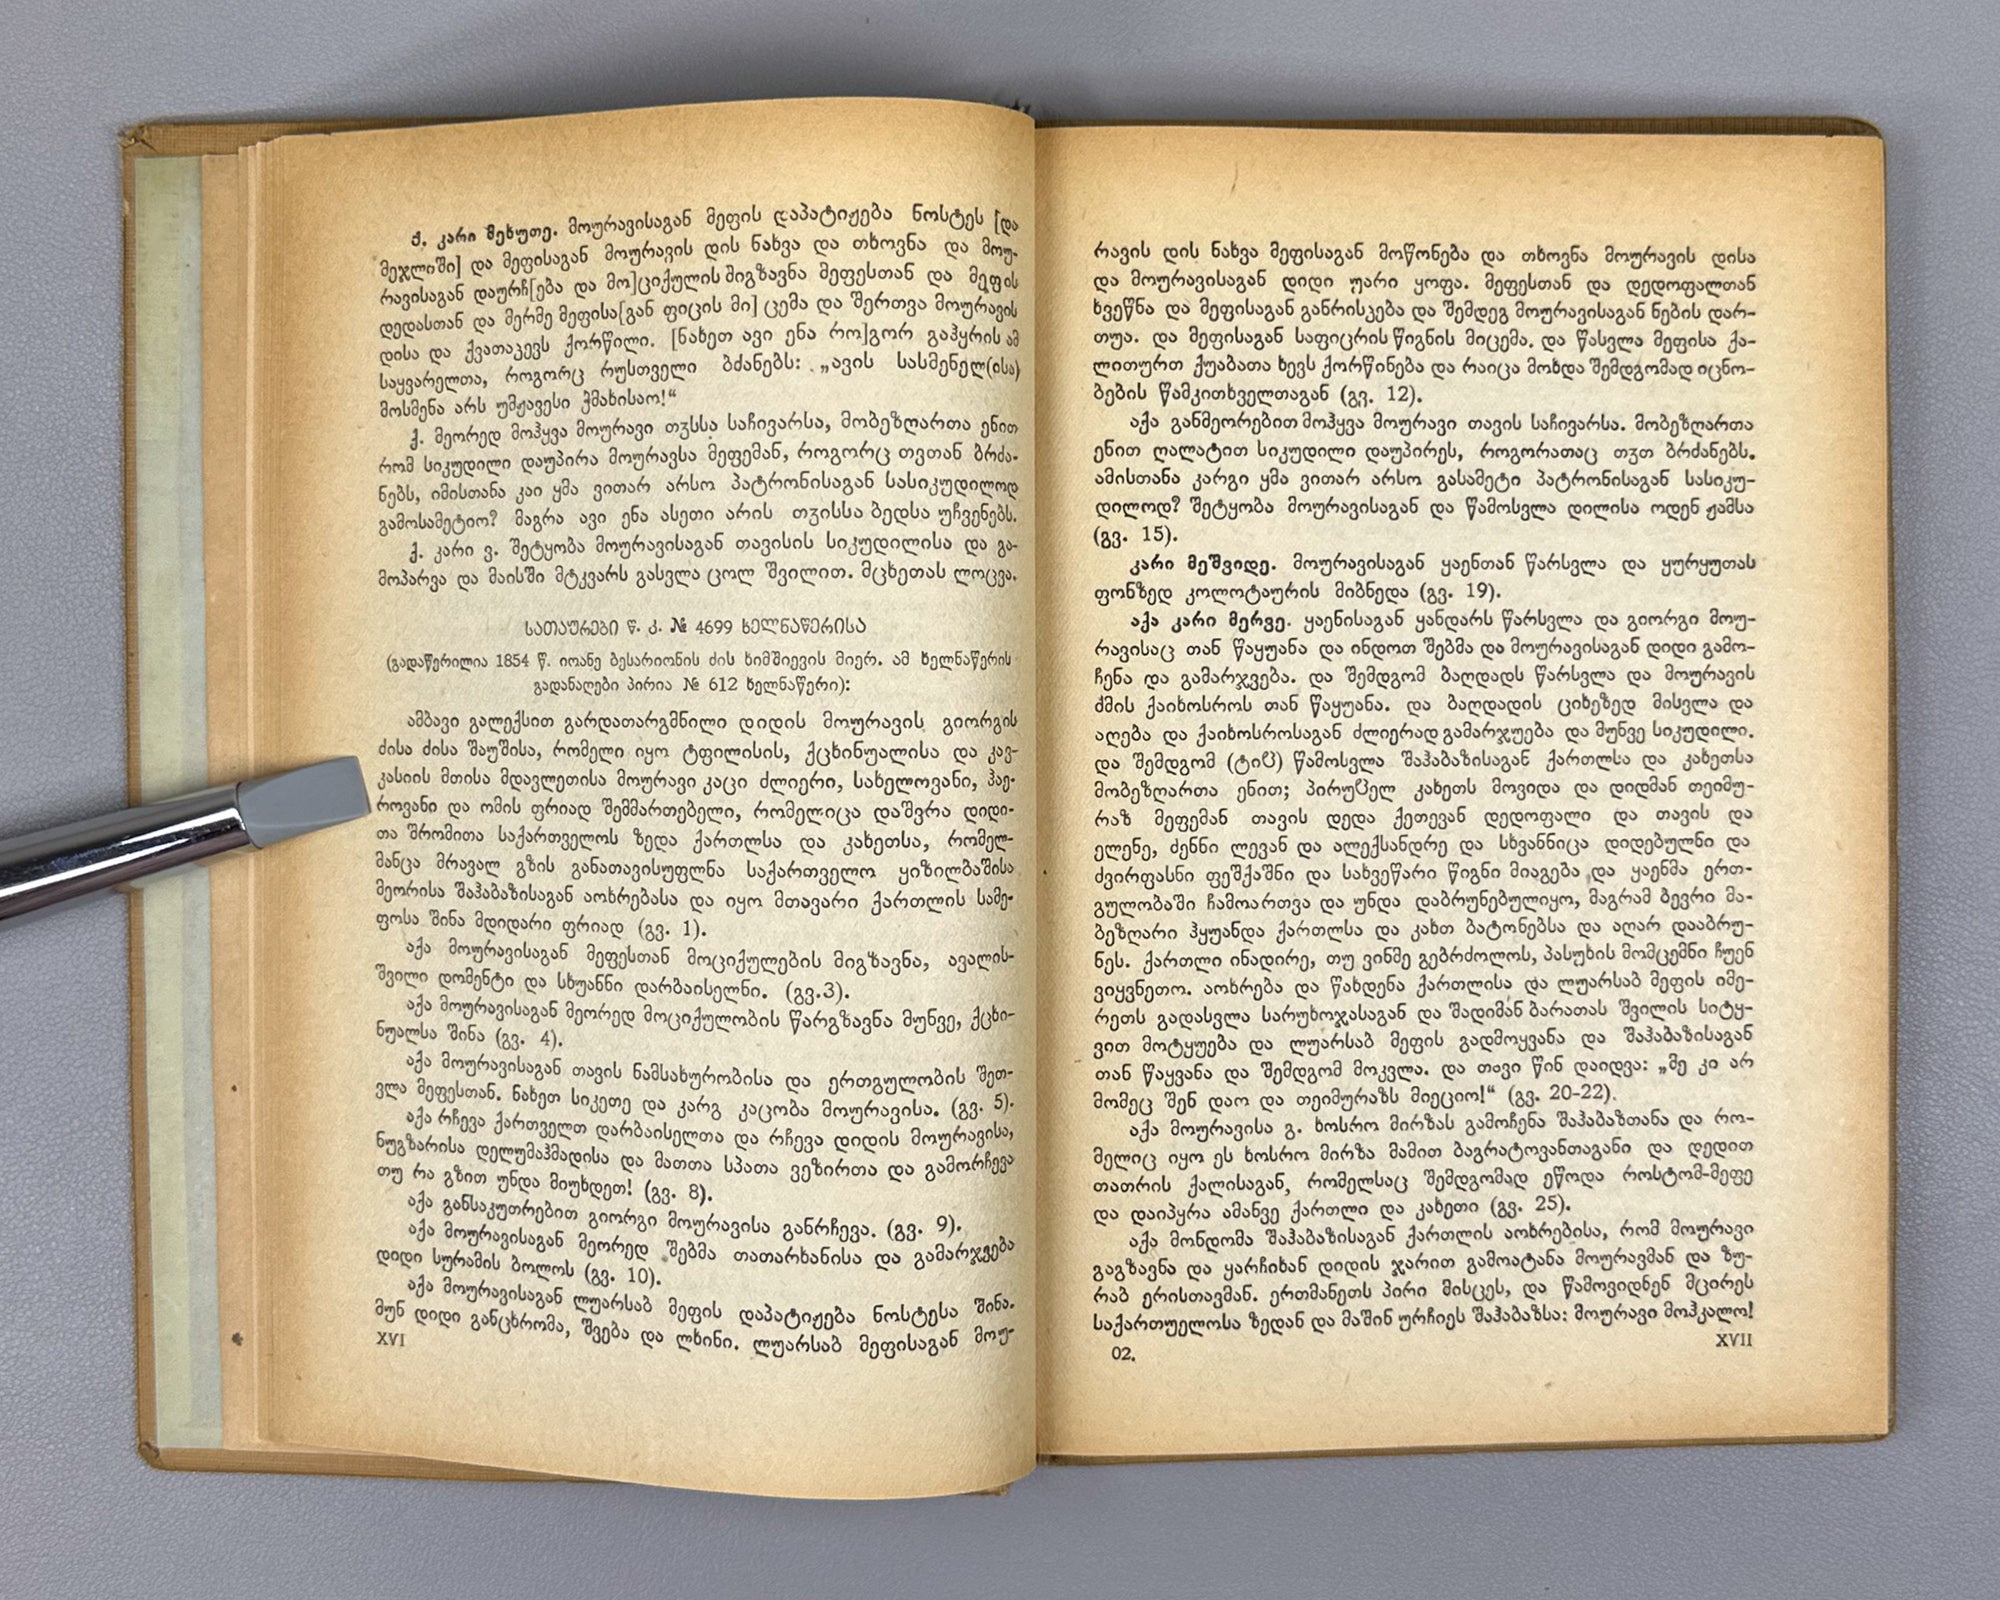 ქ. კარი მეხუთე. მოურავისაგან მეფის დაპატიჟება ნოსტეს [და
მეჯლიში] და მეფისაგან მოურავის დის ნახვა და თხოვნა და მოუ-
რავისაგან დაურჩ[ება და მო]ციქულის მიგზავნა მეფესთან და მეფის
დედასთან და მერმე მეფისა[გან ფიცის მი] ცემა და შერთვა მოურავის
დისა და ქვათაკევს ქორწილი. [ნახეთ ავი ენა რო]გორ გაჰყრის ამ
საყვარელთა, როგორც რუსთველი ბძანებს: „ავის სასმენელ(ისა)
მოსმენა არს უმჟავესი ჭმახისაო!“
ქ. მეორედ მოჰყვა მოურავი თჳსსა საჩივარსა, მობეზღართა ენით
რომ სიკუდილი დაუპირა მოურავსა მეფემან, როგორც თვთან ბრძა-
ნებს, იმისთანა კაი ყმა ვითარ არსო პატრონისაგან სასიკუდილოდ
გამოსამეტიო? მაგრა ავი ენა ასეთი არის თჳისსა ბედსა უჩვენებს.
ქ. კარი ვ. შეტყობა მოურავისაგან თავისის სიკუდილისა და გა-
მოპარვა და მაისში მტკვარს გასვლა ცოლ შვილით. მცხეთას ლოცვა.
სათაურები წ. კ. № 4699 ხელნაწერისა
(გადაწერილია 1854 წ. იოანე ბესარიონის ძის ხიმშიევის მიერ. ამ ხელნაწერის
გადანაღები პირია № 612 ხელნაწერი):
ამბავი გალექსით გარდათარგმნილი დიდის მოურავის გიორგის
ძისა ძისა შაუშისა, რომელი იყო ტფილისის, ქცხინუალისა და კავ-
კასიის მთისა მდავლეთისა მოურავი კაცი ძლიერი, სახელოვანი, ჰაე-
როვანი და ომის ფრიად შემმართებელი, რომელიცა დაშვრა დიდი-
თა შრომითა საქართველოს ზედა ქართლსა და კახეთსა, რომელ-
მანცა მრავალ გზის განათავისუფლნა საქართველო ყიზილბაშისა
მეორისა შაჰაბაზისაგან აოხრებასა და იყო მთავარი ქართლის სამე-
ფოსა შინა მდიდარი ფრიად (გვ. 1).
აქა მოურავისაგან მეფესთან მოციქულების მიგზავნა, ავალის-
შვილი დომენტი და სხუანნი დარბაისელნი. (გვ.3).
აქა მოურავისაგან მეორედ მოციქულობის წარგზავნა მუნვე, ქცხი-
ნუალსა შინა (გვ. 4).
აქა მოურავისაგან თავის ნამსახურობისა და ერთგულობის შეთ-
ვლა მეფესთან. ნახეთ სიკეთე და კარგ კაცობა მოურავისა. (გვ. 5).
აქა რჩევა ქართველთ დარბაისელთა და რჩევა დიდის მოურავისა,
ნუგზარისა დელუმაჰმადისა და მათთა სპათა ვეზირთა და გამორჩევა
თუ რა გზით უნდა მიუხდეთ! (გვ. 8).
აქა განსაკუთრებით გიორგი მოურავისა განრჩევა. (გვ. 9).
აქა მოურავისაგან მეორედ შებმა თათარხანისა და გამარჯვება
დიდი სურამის ბოლოს (გვ. 10).
აქა მოურავისაგან ლუარსაბ მეფის დაპატიჟება ნოსტესა შინა.
მუნ დიდი განცხრომა, შვება და ლხინი. ლუარსაბ მეფისაგან მოუ-
XVI
რავის დის ნახვა მეფისაგან მოწონება და თხოვნა მოურავის დისა
და მოურავისაგან დიდი უარი ყოფა. მეფესთან და დედოფალთან
ხვეწნა და მეფისაგან განრისკება და შემდეგ მოურავისაგან ნების დარ-
თუა. და მეფისაგან საფიცრის წიგნის მიცემა. და წასვლა მეფისა ქა-
ლითურთ ქუაბათა ხევს ქორწინება და რაიცა მოხდა შემდგომად იცნო-
ბების წამკითხველთაგან (გვ. 12).
აქა განმეორებით მოჰყვა მოურავი თავის საჩივარსა. მობეზღართა
ენით ღალატით სიკუდილი დაუპირეს, როგორათაც თჳთ ბრძანებს.
ამისთანა კარგი ყმა ვითარ არსო გასამეტი პატრონისაგან სასიკუ-
დილოდ? შეტყობა მოურავისაგან და წამოსვლა დილისა ოდენ ჟამსა
(გვ. 15).
კარი მეშვიდე. მოურავისაგან ყაენთან წარსვლა და ყურყუთას
ფონზედ კოლოტაურის მიბნედა (გვ. 19).
აქა კარი მერვე. ყაენისაგან ყანდარს წარსვლა და გიორგი მოუ-
რავისაც თან წაყუანა და ინდოთ შებმა და მოურავისაგან დიდი გამო-
ჩენა და გამარჯვება. და შემდგომ ბაღდადს წარსვლა და მოურავის
ძმის ქაიხოსროს თან წაყუანა. და ბაღდადის ციხეზედ მისვლა და
აღება და ქაიხოსროსაგან ძლიერად გამარჯუება და მუნვე სიკუდილი.
და შემდგომ (ტიც) წამოსვლა შაჰაბაზისაგან ქართლსა და კახეთსა
მობეზღართა ენით; პირუცელ კახეთს მოვიდა და დიდმან თეიმუ-
რაზ მეფემან თავის დედა ქეთევან დედოფალი და თავის და
ელენე, ძენნი ლევან და ალექსანდრე და სხვანნიცა დიდებულნი და
ძვირფასნი ფეშქაშნი და სახვეწარი წიგნი მიაგება და ყაენმა ერთ-
გულობაში ჩამოართვა და უნდა დაბრუნებულიყო, მაგრამ ბევრი მა-
ბეზღარი ჰყუანდა ქართლსა და კახთ ბატონებსა და აღარ დააბრუ-
ნეს. ქართლი ინადირე, თუ ვინმე გებრძოლოს, პასუხის მომცემნი ჩუენ
ვიყვნეთო. აოხრება და წახდენა ქართლისა და ლუარსაბ მეფის იმე-
რეთს გადასვლა სარუხოჯასაგან და შადიმან ბარათას შვილის სიტყ-
ვით მოტყუება და ლუარსაბ მეფის გადმოყვანა და შაჰაბაზისაგან
თან წაყვანა და შემდგომ მოკვლა. და თავი წინ დაიდვა: „მე კი არ
მომეც შენ დაო და თეიმურაზს მიეციო!“ (გვ. 20-22).
აქა მოურავისა გ. ხოსრო მირზას გამოჩენა შაჰაბაზთანა და რო-
მელიც იყო ეს ხოსრო მირზა მამით ბაგრატოვანთაგანი და დედით
თათრის ქალისაგან, რომელსაც შემდგომად ეწოდა როსტომ-მეფე
და დაიპყრა ამანვე ქართლი და კახეთი (გვ. 25).
აქა მონდომა შაჰაბაზისაგან ქართლის აოხრებისა, რომ მოურავი
გაგზავნა და ყარჩიხან დიდის ჯარით გამოატანა მოურავმან და ზუ-
რაბ ერისთავმან. ერთმანეთს პირი მისცეს, და წამოვიდნენ მცირეს
საქართუელოსა ზედან და მაშინ ურჩიეს შაჰაბაზსა: მოურავი მოჰკალო!
XVII
02.